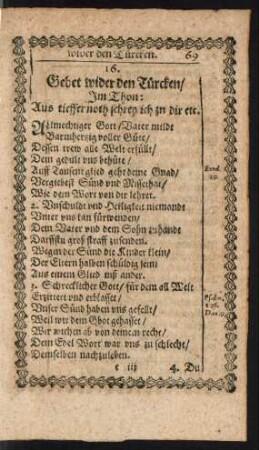 wider den Türcken. 69
16.
Gebet wider den Türcken/
Im Thon:
Aus tieffer noth schrey ich zu dir etc.
Allmechtiger Gott/Vater mildt
Barmhertzig voller Güte/
Dessen trew alle Welt erfüllt/
Dein gedült vns behüte/
Auff Tausent glied geht deine Gnad/
Vergiebest Sünd vnd Missethat/
Wie dein Wort von dir lehret.
Exod. 20.
2. Vnschuldt vnd Heiligkeit niemandt
Vnter vns kan fürwenden/
Dem Vater vnd dem Sohn zuhandt
Darffstu groß straff zusenden.
Wegen der Sünd die Kinder klein/
Der Eltern halben schüldig sein
Aus einem Glied inß ander.
3. Schrecklicher Gott/für dem all Welt
Erzittert vnd erblasset/
Vnser Sünd haben vns gefellt/
Weil wir dein Gbot gehasset/
Wir wichen ab von deinem recht/
Dein Edel Wort war vns zu schlecht/
Demselben nachzuleben.
Psalm.
Dan. 9.
e iij 4. Du